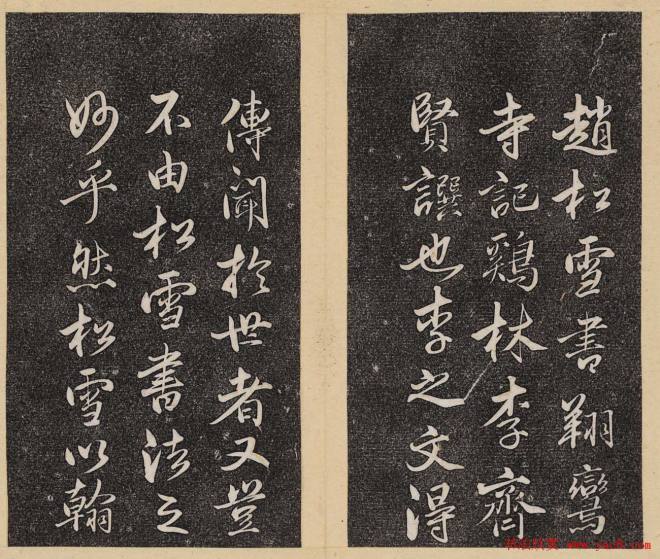 趙松雪書翔鸞
寺記鷄林李齊
賢譔也李之文得
傳聞於世者又豈
不由松雪書法之
妙乎然松雪以翰